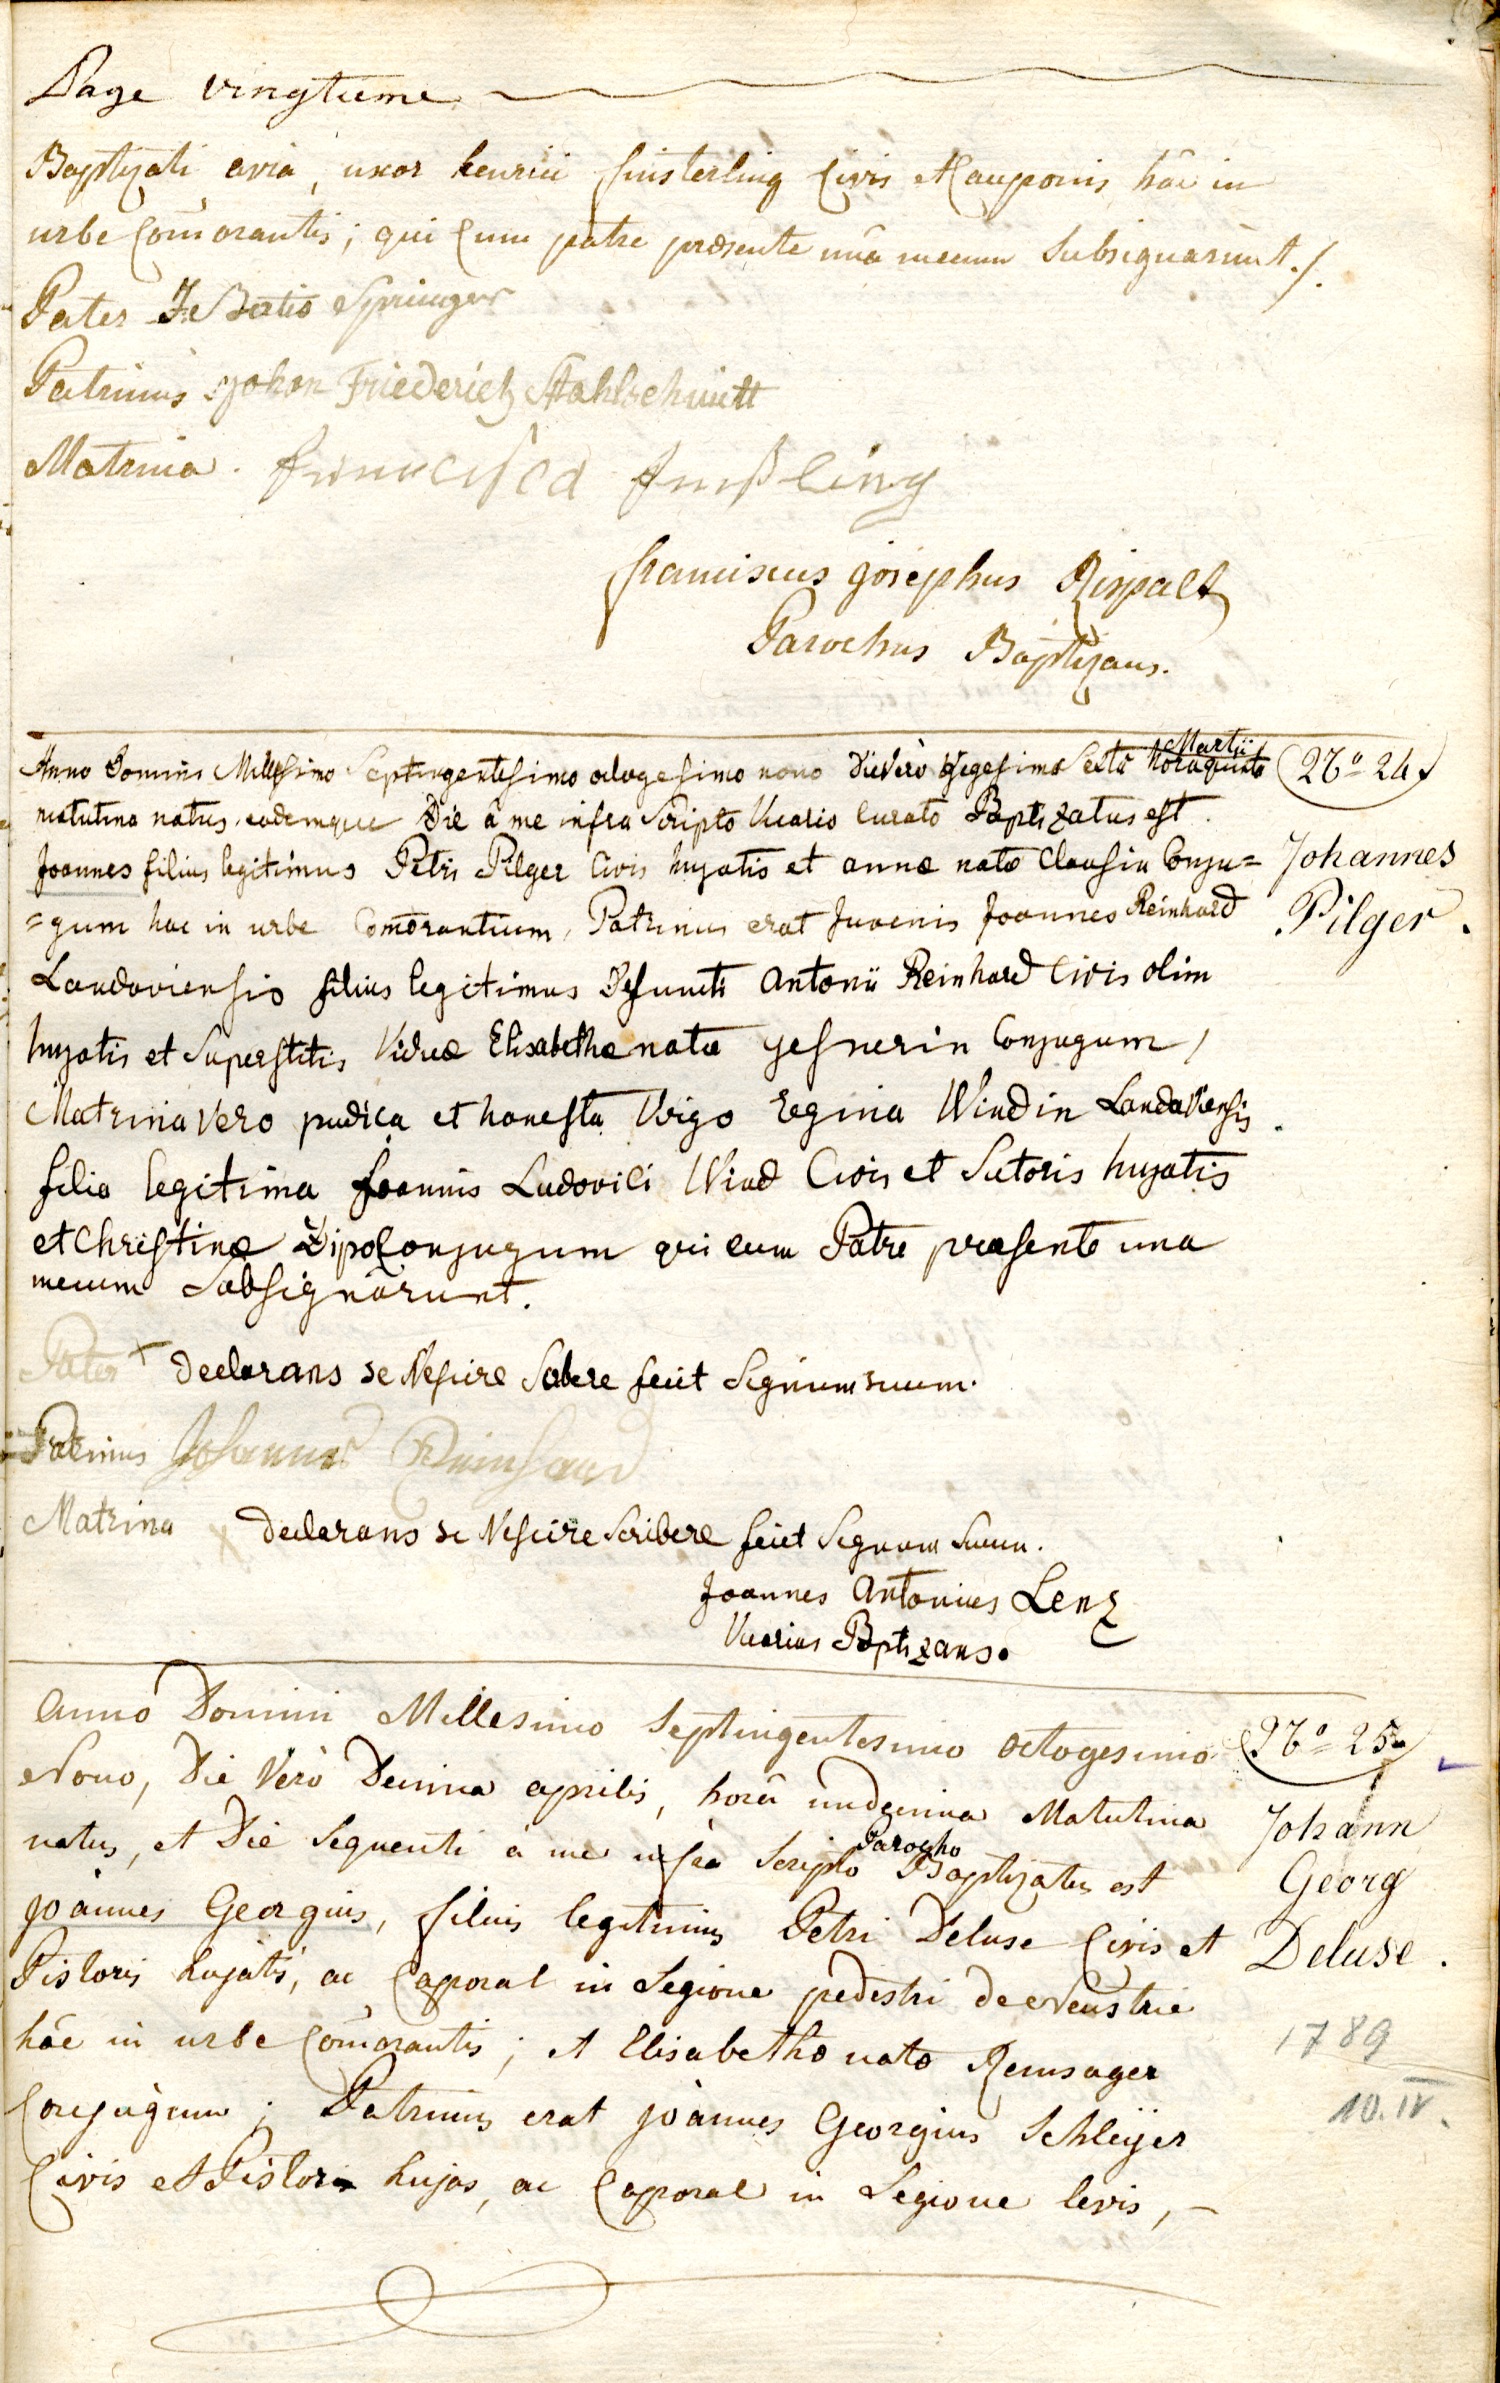 Page vingtieme
Baptizati avia, uxor henrici finsterling Civis et Cauponis hâc in
urbe Com̃orantis; qui Cum patre præsente unâ mecum Subsignarunt./.
Pater Springer
Patrinus Johan Friederich Stahlschmitt
Matrina. francisca
franciscus josephus Rispalt
Parochus Baptizans.
Anno Domini Millesimo Septingentesimo octogesimo nono Die Verò Vigesima Sexta Martii hora quinta
matutina natus eademque Die à me infra Scripto Vicario Curato Baptizatus est.
Joannes filius legitimus Petri Pilger Civis hujatis et annæ natæ Clausin Conju=
=gum hac in urbe Com̃orantium, Patrinus erat Juvenis Joannes Reinhard
Landaviensis filius legitimus Defuncti Antonii Reinhard Civis olim
hujatis et Superstitis Viduæ Elisabethæ natæ gesnerin Conjugum,
Matrina Vero pudica et honesta Virgo regina Windin Landaviensis.
filia legitima Joannis Ludovici Wind Civis et Sutoris hujatis
et Christinæ Conjugum qui cum Patre præsente una
mecum Subsignârunt.
Pater + Declarans se Nescire Scribere fecit Signum suum.
Patrinus Johannes Reinhard
Matrina x Declarans se Nescire Scribere fecit Signum Suum.
Joannes Antonius Lenz
Vicarius Bptizans.
Nō 24
Johannes
Pilger.
Anno Domini Millesimo Septingentesimo octogesimo
Nono, Die Verò Decima aprilis, horâ undecima Matutina
natus, et Die Sequenti à me infra Scripto Parocho Baptizatus est
joànnes Georgius, filius legitimus Petri Deluse Civis et
Pistoris hujatis, ac Caporal in Legione pedestri de Neustrie
hâc in urbe Com̃orantis; et Elisabethæ natæ Remsager
Conjugum; Patrinus erat joànnes Georgius Schleijer
Civis et Pistor hujas, ac Caporal in Legione levis, –
Nō 25
Johann
Georg
Deluse.
1789
10. IV.